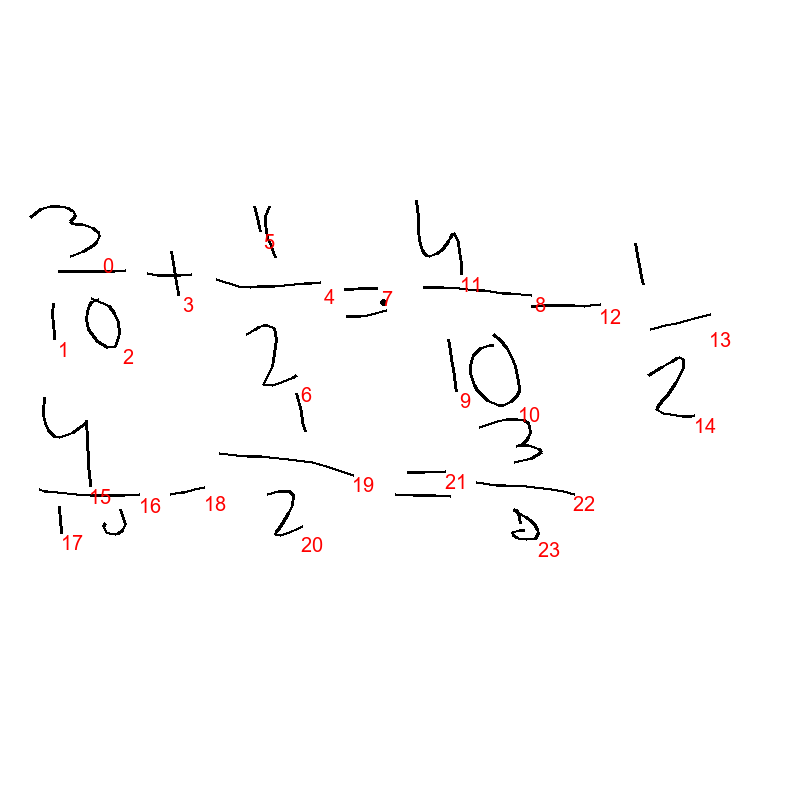 3/10 + 1/2 = 4/10 - 1/2
4/10 - 1/2 = 3/0
0 1 2 3 4 5 6 7 8 9 10 11 12 13 14 15 16 17 18 19 20 21 22 23